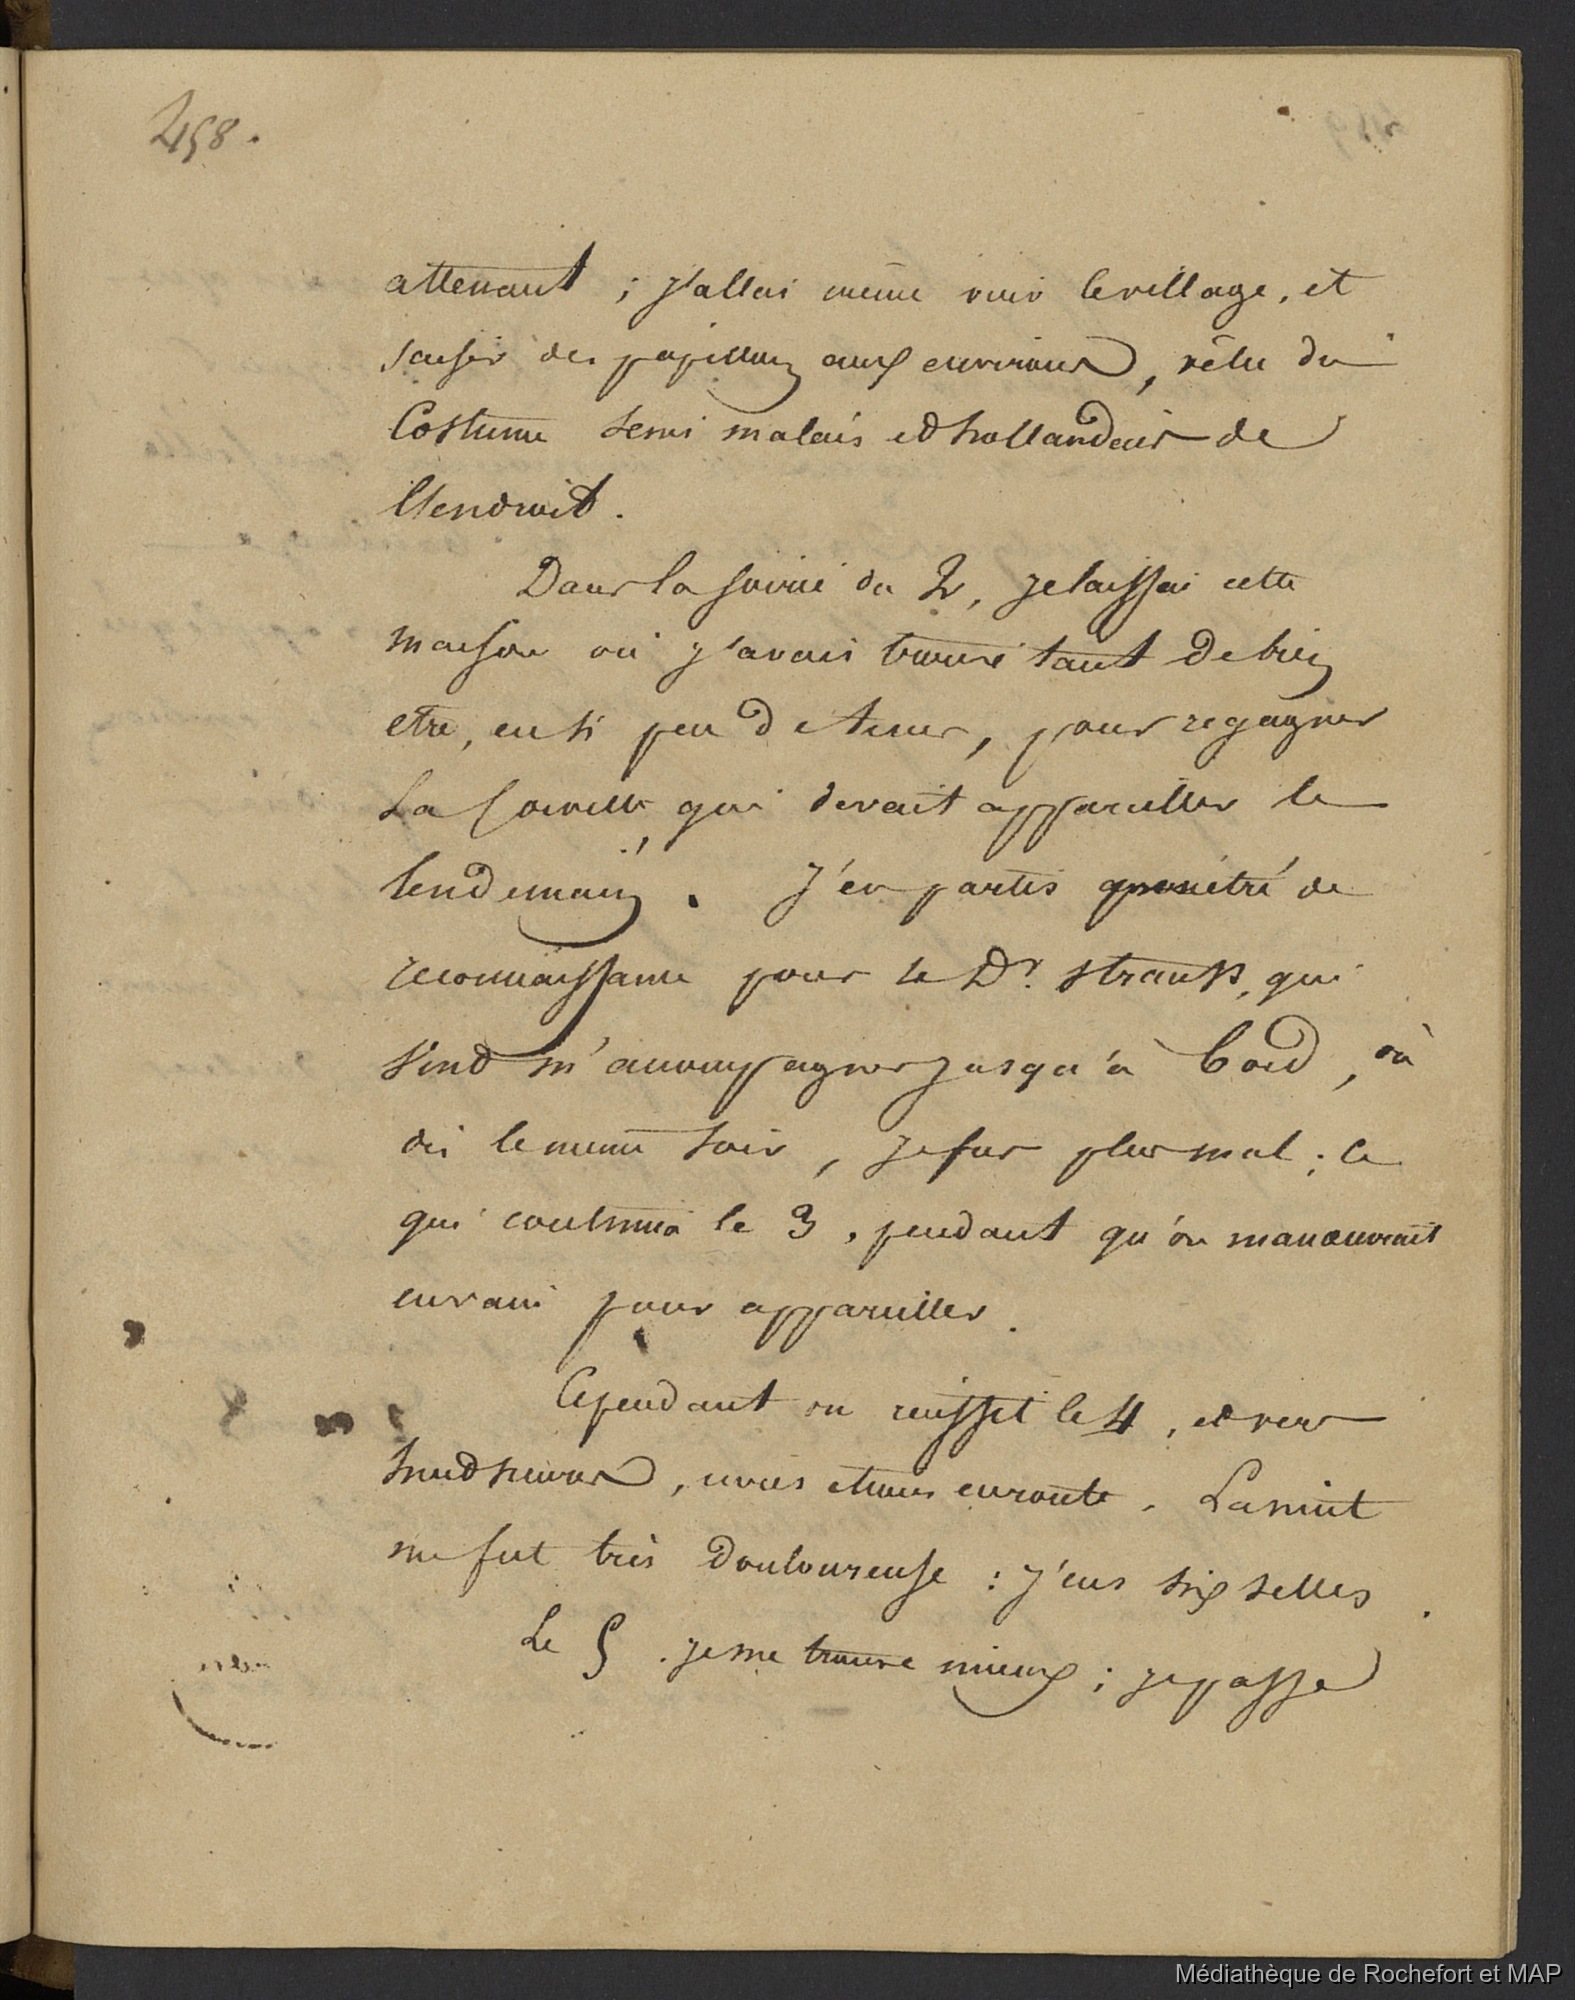 458.
attenant ; j'allai même voir le village, et
saisir des papillons aux environs, vêtu du
Costume semi malais et hollandais de
l'endroit.
Dans la soirée du 2, je laissai cette
maison où j'avais trouvé tant de bien
etre, en si peu de tems, pour regagner
La Coevelle qui devait appareiller le
lendemain. J'en partis pénétré de
reconnaissance pour le Dr. Strauss, qui
vint m'accompagner jusqu'à bord, où
dès le même soir, je fus plus mal ; ce
qui continua le 3, pendant qu'on manœuvrait
en vain pour appareiller.
Cependant on réussit le 4, et vers
huit heures, nous etions en route. La nuit
me fut très douloureuse : j'eus six selles.
Le 5. je me trouve mieux ; je passe
Médiathèque de Rochefort et MAP